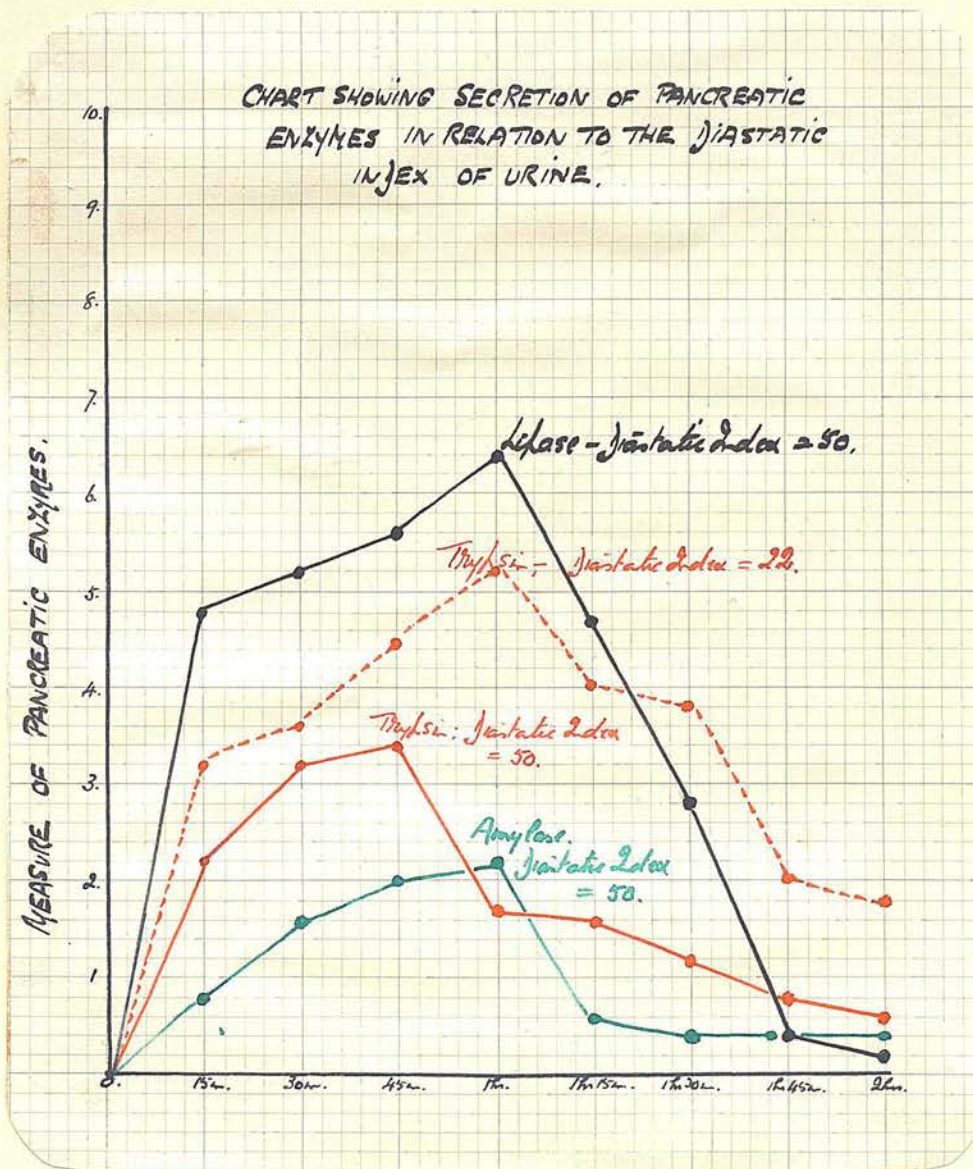 CHART SHOWING SECRETION OF PANCREATIC
ENZYMES IN RELATION TO THE DIASTATIC
INDEX OF URINE.
10.
9.
8.
7.
6.
5.
4.
3.
2.
1
0.
MEASURE OF PANCREATIC ENZYMES.
Lipase - Diastatic Index = 50.
Trypsin - Diastatic Index = 22.
Trypsin: Diastatic Index
= 50.
Amylase.
Diastatic Index
= 50.
15m. 30m. 45m. 1hr. 1hr15m. 1hr30m. 1hr45m. 2hrs.